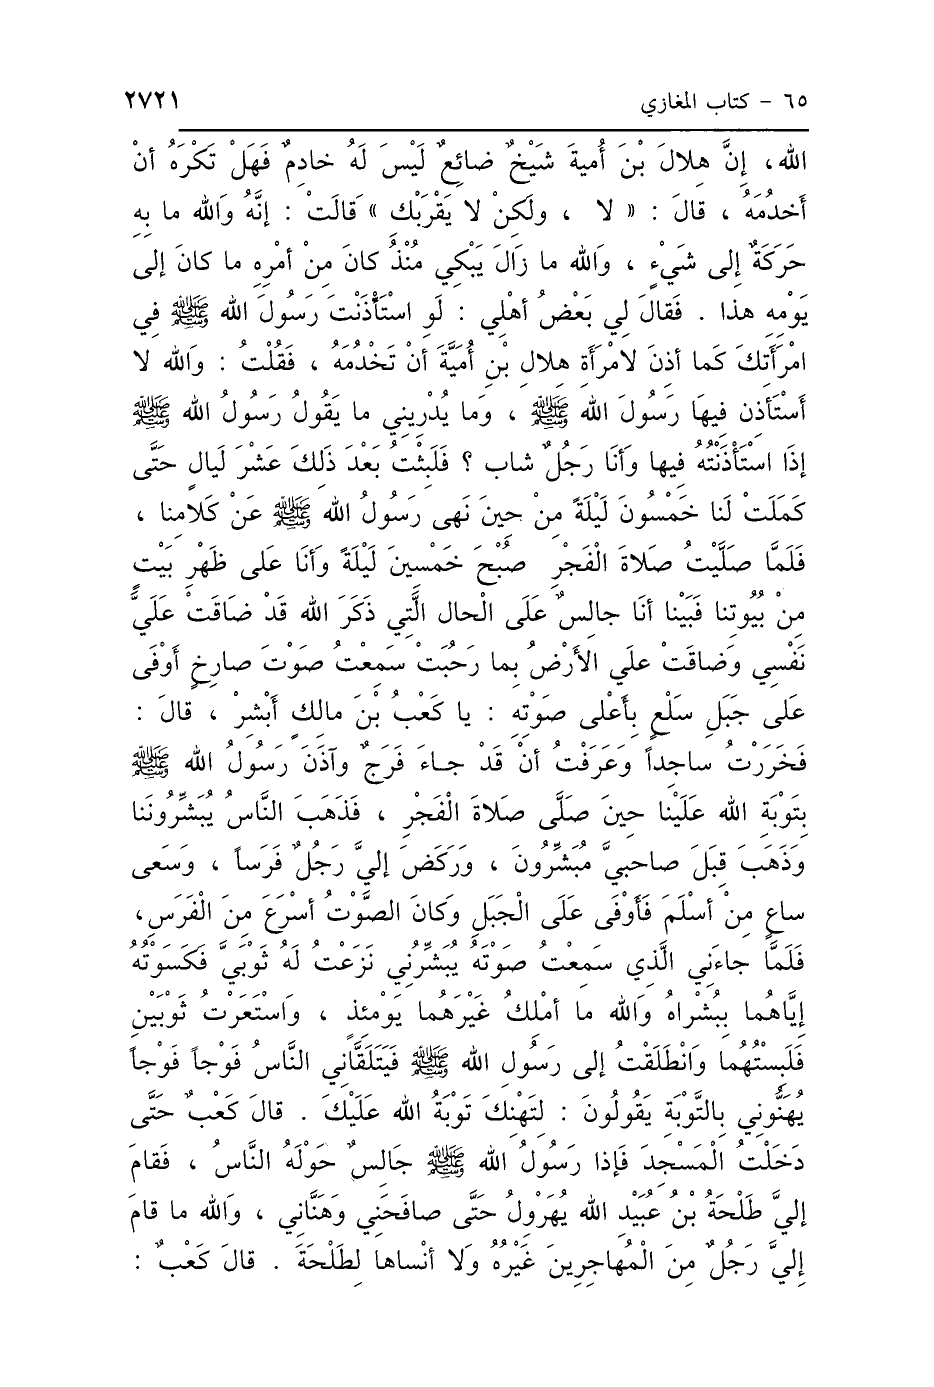 ٦٥ - كتاب المغازي ٢٧٢١
الله، إِنَّ هِلالَ بْنَ أُميةَ شَيْخٌ ضائِعٌ لَيْسَ لَهُ خادِمٌ فَهَلْ تَكْرَهُ أنْ
أَخدُمَهُ ، قالَ : « لا ، ولَكِنْ لا يَقْرَبْكِ » قالَتْ : إنَّهُ وَالله ما بِهِ
حَرَكَةٌ إلى شَيْءٍ ، وَالله ما زَالَ يَبْكِي مُنْذُ كانَ مِنْ أمْرِهِ ما كانَ إلى
يَوْمِهِ هذا . فَقالَ لي بَعْضُ أهْلِي : لَوِ اسْتَأْذَنْتَ رَسُولَ الله ﷺ فِي
امْرَأَتِكَ كَما أذِنَ لامْرَأَةِ هِلالِ بْنِ أُمَيَّةَ أنْ تَخْدُمَهُ ، فَقُلْتُ : وَالله لا
أَسْتَأذِن فِيهَا رَسُولَ الله ﷺ ، وَما يُدْرِيني ما يَقُولُ رَسُولُ الله ﷺ
إذَا اسْتَأْذَنْتُهُ فِيها وأَنَا رَجُلٌ شاب ؟ فَلَبِثْتُ بَعْدَ ذَلِكَ عَشْرَ لَيالٍ حَتَّى
كَمَلَتْ لَنا خَمْسُونَ لَيْلَةً مِنْ حِينَ نَهى رَسُولُ الله ﷺ عَنْ كَلامِنا ،
فَلَمَّا صَلَّيْتُ صَلاةَ الْفَجْرِ صُبْحَ خَمْسِينَ لَيْلَةً وأنَا عَلى ظَهْرِ بَيْتٍ
مِنْ بُيُوتِنا فَبَيْنا أنَا جالِسٌ عَلَى الْحالِ الَّتِي ذَكَرَ الله قَدْ ضَاقَتْ عَلَيَّ
نَفْسِي وَضاقَتْ عليَ الأَرْضُ بِما رَحُبَتْ سَمِعْتُ صَوْتَ صارِخٍ أَوْفَى
عَلى جَبَلِ سَلْعٍ بِأَعْلى صَوْتِهِ : يا كَعْبُ بْنَ مالِكٍ أَبْشِرْ ، قالَ :
فَخَرَرْتُ ساجِداً وَعَرَفْتُ أنْ قَدْ جاءَ فَرَجٌ وآذَنَ رَسُولُ الله ﷺ
بِتَوْبَةِ الله عَلَيْنا حِينَ صَلَّى صَلاةَ الْفَجْرِ ، فَذَهَبَ النَّاسُ يُبَشِّرُونَنا
وَذَهَبَ قِبَلَ صاحِبيَّ مُبَشِّرُونَ ، وَرَكَضَ إليَّ رَجُلٌ فَرَساً ، وَسَعى
ساعٍ مِنْ أسْلَمَ فَأَوْفى عَلَى الْجَبَلِ وَكانَ الصَّوْتُ أسْرَعَ مِنَ الْفَرَسِ،
فَلَمَّا جاءَنِي الَّذِي سَمِعْتُ صَوْتَهُ يُبَشِّرُني نَزَعْتُ لَهُ ثَوْبَيَّ فَكَسَوْتُهُ
إيَّاهُما بِبُشْراهُ وَالله ما أمْلِكُ غَيْرَهُما يَوْمئِذٍ ، وَاسْتَعَرْتُ ثَوْبَيْنِ
فَلَبِسْتُهُما وَانْطَلَقْتُ إلى رَسُولِ الله ﷺ فَيَتَلَقَّاني النَّاسُ فَوْجاً فَوْجاً
يُهَنُّونِي بالتَّوْبَةِ يَقُولُونَ : لِتَهْنِكَ تَوْبَةُ الله عَلَيْكَ . قالَ كَعْبٌ حَتَّى
دَخَلْتُ الْمَسْجِدَ فَإذا رَسُولُ الله ﷺ جَالِسٌ حَوْلَهُ النَّاسُ ، فَقامَ
إليَّ طَلْحَةُ بْنُ عُبَيْدِ الله يُهَرْوِلُ حَتَّى صافَحَنِي وهَنَّانِي ، وَالله ما قامَ
إلِيَّ رَجُلٌ مِنَ الْمُهاجِرِينَ غَيْرُهُ وَلا أنْساها لِطَلْحَةَ . قالَ كَعْبٌ :